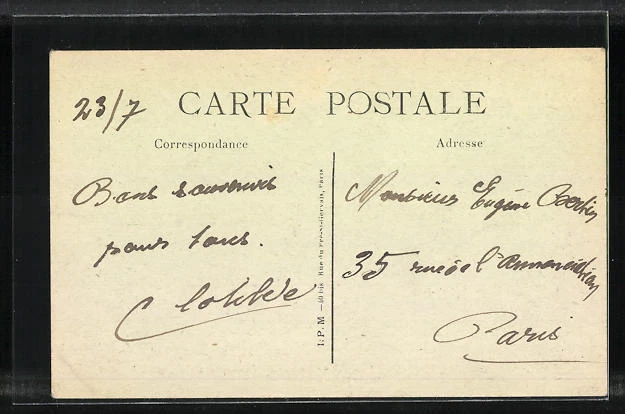 CARTE POSTALE
23/7
Correspondance
Adresse
Bons souvenirs
pour tous.
Clotilde
I. P. M — 50 bis Rue du Pré-St-Gervais, Paris
Monsieur Eugène
35 rue de l'Annonciation
Paris